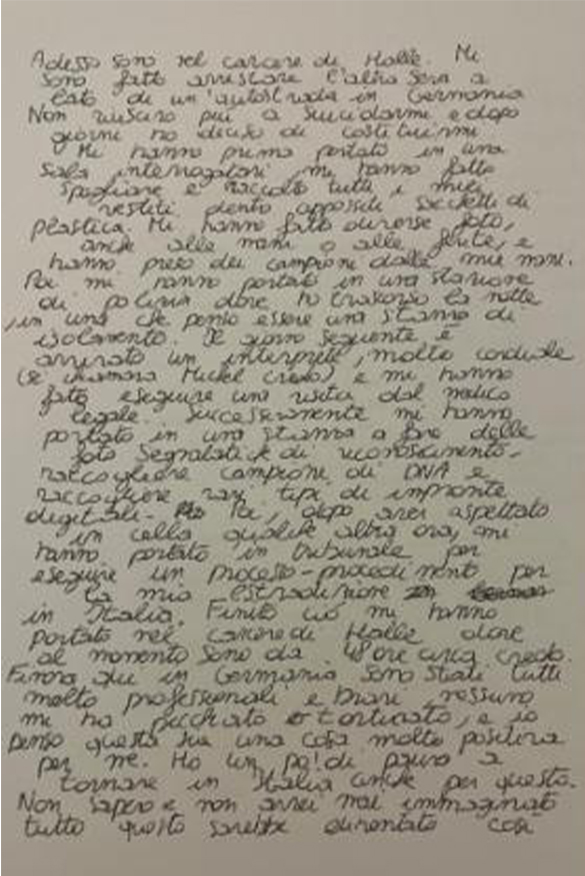 Adesso sono nel carcere di Halle. Mi
sono fatto arrestare l'altra sera a
lato di un'autostrada in Germania
Non riuscivo più a suicidarmi e dopo
giorni ho deciso di costituirmi
Mi hanno prima portato in una
sala interrogatori, mi hanno fatto
spogliare e raccolto tutti i miei
vestiti dentro appositi sacchetti di
plastica. Mi hanno fatto diverse foto,
anche alle mani o alle ferite, e
hanno preso dei campioni dalle mie mani.
Poi mi hanno portato in una stazione
di polizia dove ho trascorso la notte
in una che penso essere una stanza di
isolamento. Il giorno seguente è
arrivato un interprete, molto cordiale
(si chiamava Michel credo) e mi hanno
fatto eseguire una visita dal medico
legale. Successivamente mi hanno
portato in una stanza a fare delle
foto segnaletiche di riconoscimento,
raccogliere campioni di DNA e
raccogliere vari tipi di impronte
digitali. Poi, dopo aver aspettato
in cella qualche altra ora, mi
hanno portato in tribunale per
eseguire un processo-procedimento per
la mia estradizione
in Italia. Finito ciò mi hanno
portato nel carcere di Halle dove
al momento sono da 48 ore circa credo.
Finora qui in Germania sono stati tutti
molto professionali e bravi, nessuno
mi ha picchiato o torturato, e io
penso questa sia una cosa molto positiva
per me. Ho un po' di paura a
tornare in Italia anche per questo.
Non sapevo e non avrei mai immaginato
tutto questo sarebbe diventato così